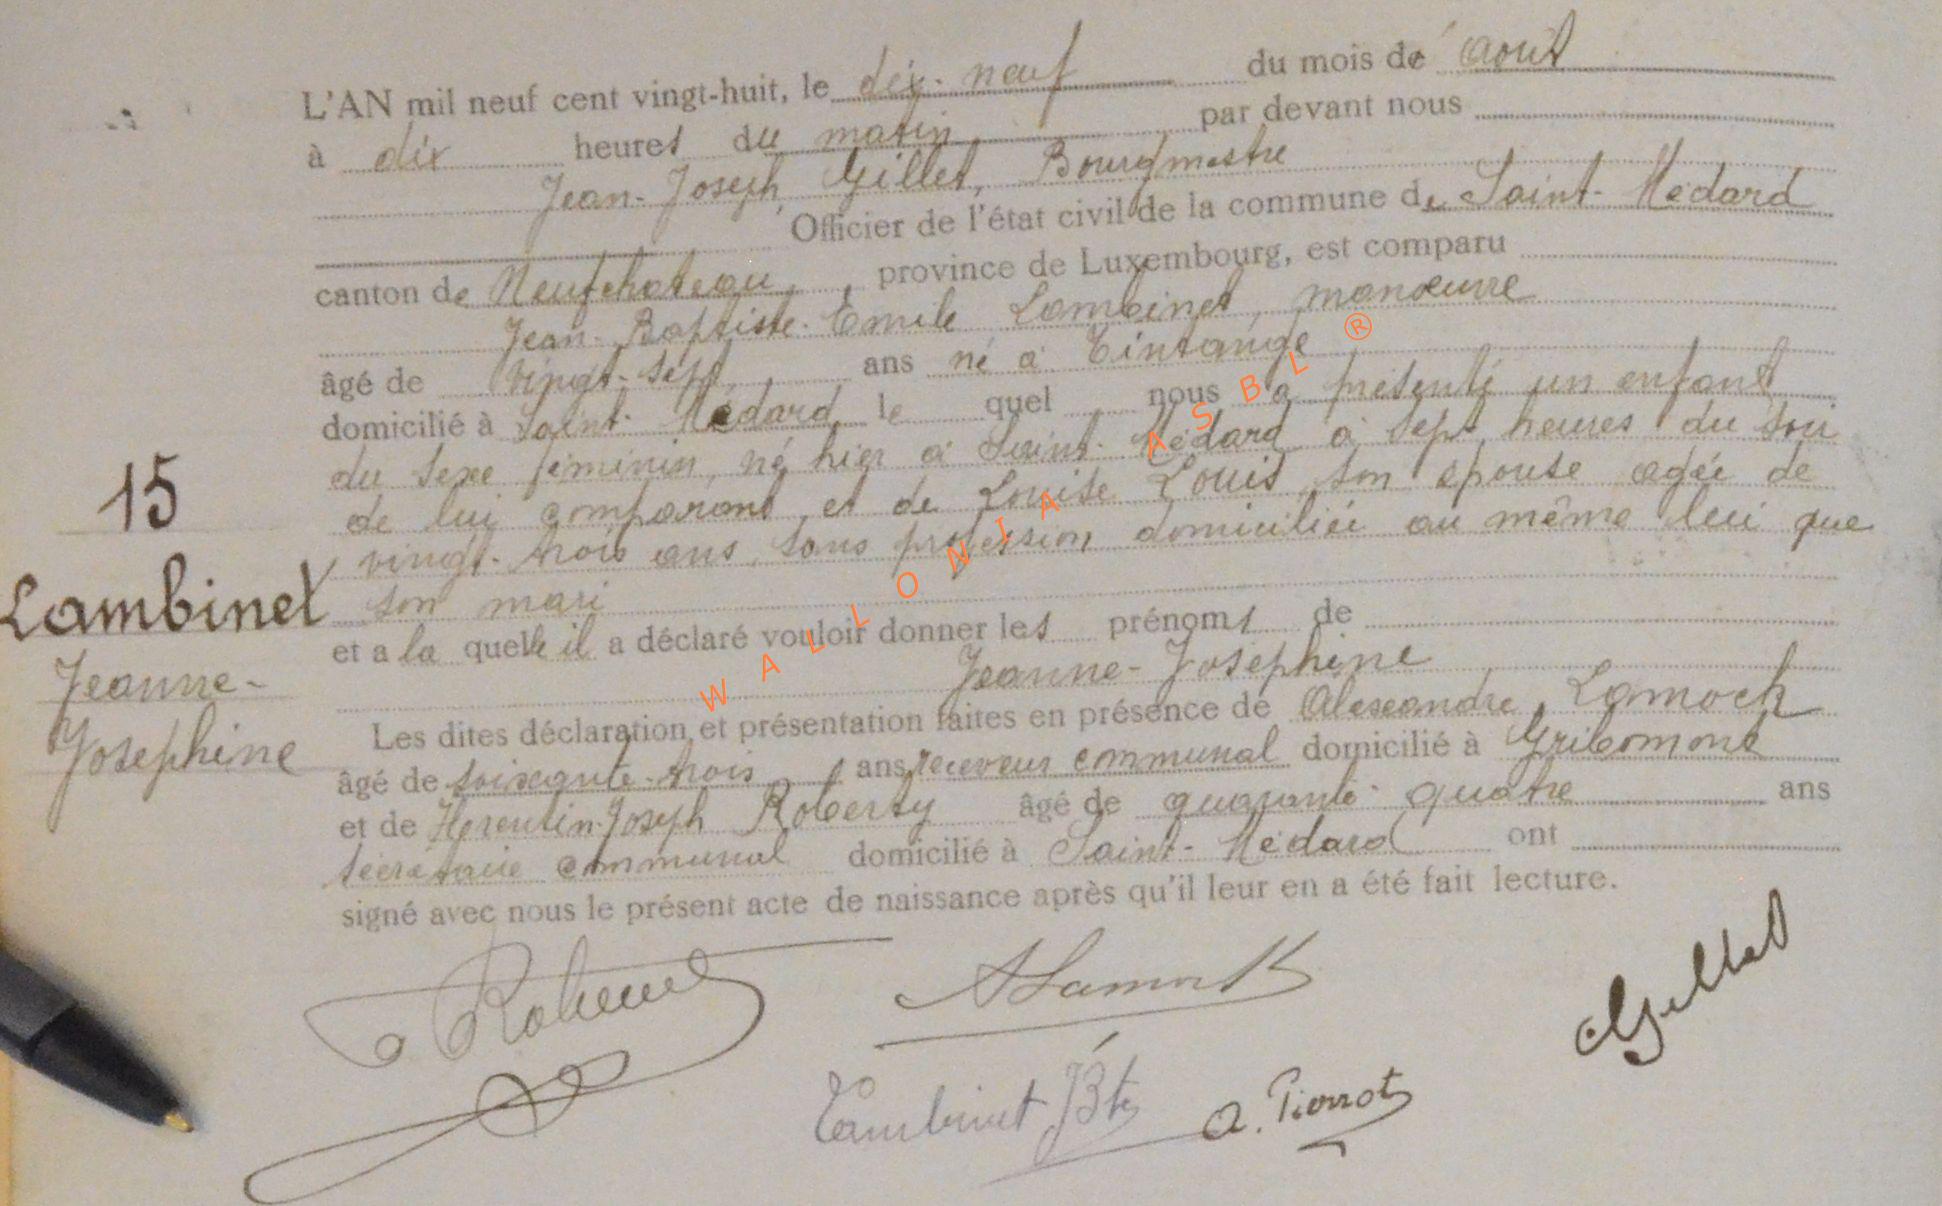 L'AN mil neuf cent vingt-huit, le dix-neuf du mois de août
à dix heures du matin par devant nous
Jean-Joseph, Gillet, Bourgmestre
Officier de l'état civil de la commune de Saint-Médard
canton de Neufchateau, province de Luxembourg, est comparu
Jean-Baptiste-Emile Lambinet, manoeuvre
âgé de vingt-sept ans né à Tintange
domicilié à Saint-Médard le quel nous a présenté un enfant
du sexe féminin, né hier à Saint-Médard à sept heures du soir
de lui comparant et de Louise Louis, son épouse agée de
vingt-trois ans, sans profession domiciliée au même lieu que
son mari
15
Lambinet
Jeanne-
Josephine
et a la quelle il a déclaré vouloir donner les prénoms de
Jeanne-Josephine
Les dites déclaration et présentation faites en présence de Alexandre, Lamock
âgé de soixante-trois ans receveur communal domicilié à Gribomont
et de Florentin-Joseph Roberty âgé de quarante-quatre ans
secrétaire communal domicilié à Saint-Médard ont
signé avec nous le présent acte de naissance après qu'il leur en a été fait lecture.
ALamock
Gillet
Lambinet JBte
A. Pierrot
WALLONIA ASBL ®